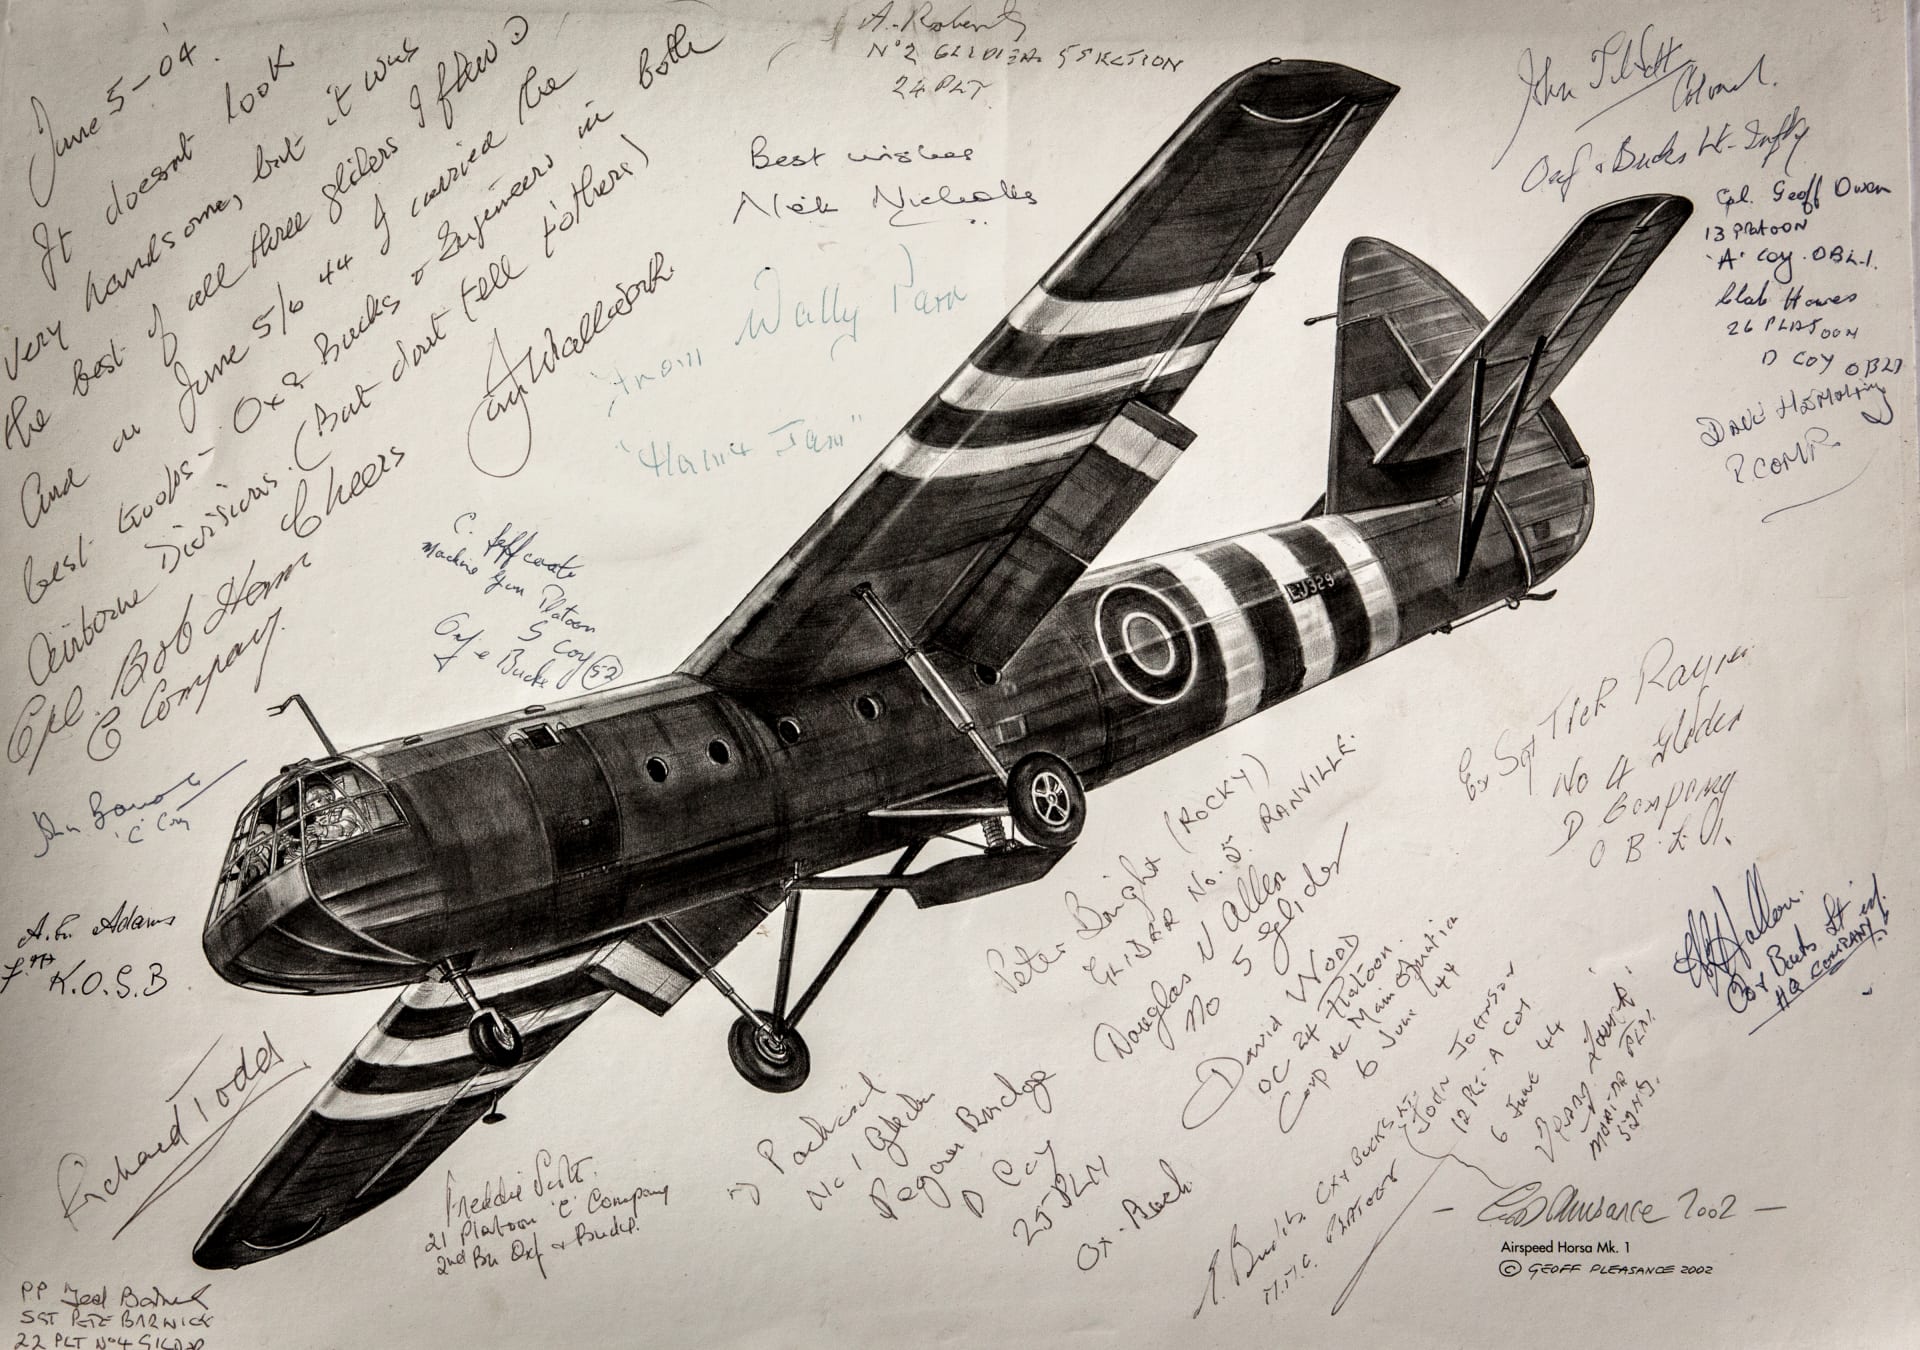 June 5-04.
It doesnt look
very handsome, but it was
the best of all three gliders I flew
And on June 5/6 44 I carried the
best troops - Ox & Bucks & Engineers in both
Airborne Divisions. (But dont tell t'others)
Cheers
Jim Wallwork
Cpl. Bob
C Company.
A. Roberts
No 2 GLIDER
24 PLT
Best wishes
Nick Nicholls
From Wally Parr
"Ham & Jam"
John Tillett
Colonel.
Oxf & Bucks Lt. Infty
Cpl. Geoff Owen
13 PLATOON
'A' COY. OBLI.
26 PLATOON
D COY OBLI
C. Jeffcoate
Machine Gun Platoon
S Coy (52)
Oxf & Bucks
John
'C' Coy
A. Adams
K.O.S.B
Richard Todd
PP Ted
SGT PETE BARWICK
22 PLT No 4 GLIDER
Freddie Scott.
21 Platoon 'C' Company
2nd Bn Oxf & Bucks.
Packwood
No 1 Glider
Pegasus Bridge
D Coy
25 PLN
Ox-Buck
Peter Bright (ROCKY)
GLIDER No. 5. RANVILLE.
Douglas V Allen
No 5 Glider
David WOOD
OC 24 Platoon
Coup de Main Operation
6 June '44
JOHN JOHNSON
12 Plt - A Coy
6 JUNE 44
MORTAR PLN.
52ND.
OXF BUCKS LT.
M.M.G. PLATOON
Ex Sgt Tich Rayner
No 4 Glider
D Company
O.B.L.I.
Oxf Bucks Lt inf.
HQ COMPANY
EJ329
Geoff Pleasance 2002
Airspeed Horsa Mk. 1
© GEOFF PLEASANCE 2002